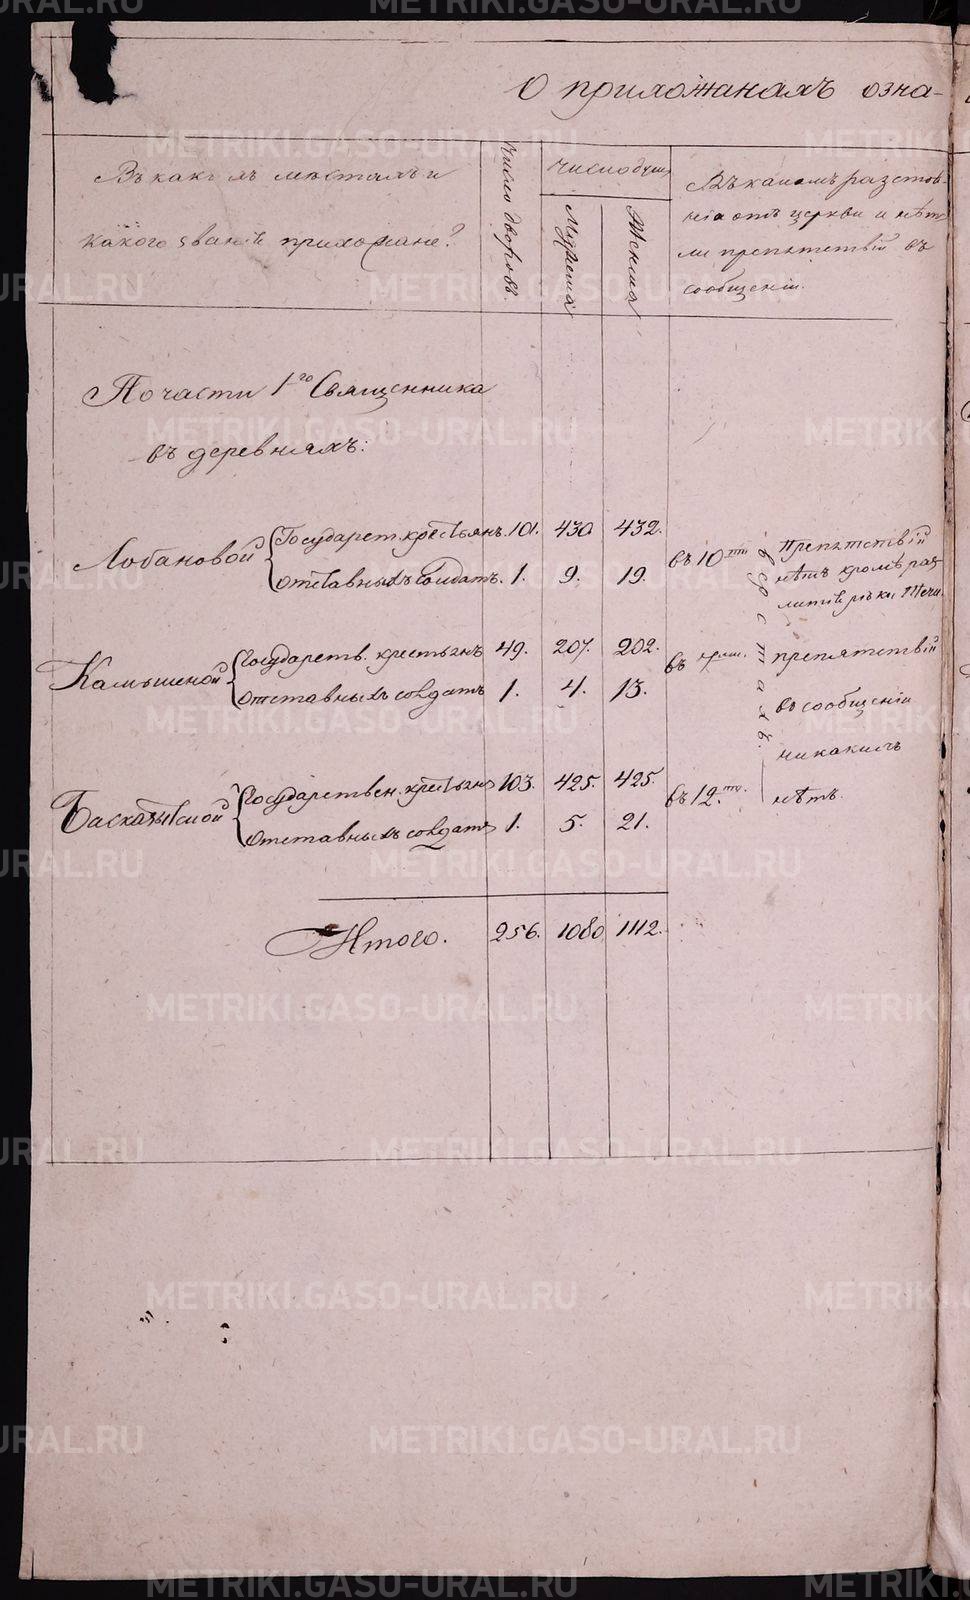 О прихожанахъ озна-
Въ какихъ мѣстахъ и
какого званія прихожане?
Число дворовъ.
Число душъ
Мужеска
Женска
Въ какомъ разстоя-
ніи отъ церкви и нѣтъ
ли препятствій въ
сообщеніи.
По части 1го Священника
въ деревняхъ:
Лобановой
Государст. крестьянъ 101. 430 432.
отставныхъ солдатъ. 1. 9. 19.
въ 10ти
верстахъ.
Препятствій
нѣтъ кромѣ раз
литія рѣки Течи.
Камышеной
Государств. крестьянъ 49. 207. 202.
отставныхъ солдатъ 1. 4. 13.
въ
препятствій
въ сообщеніи
никакихъ
нѣтъ.
Государствен. крестьянъ 103. 425. 425.
отставныхъ солдатъ 1. 5. 21.
въ 12.ти.
Итого. 256. 1080 1112.
METRIKI.GASO-URAL.RU